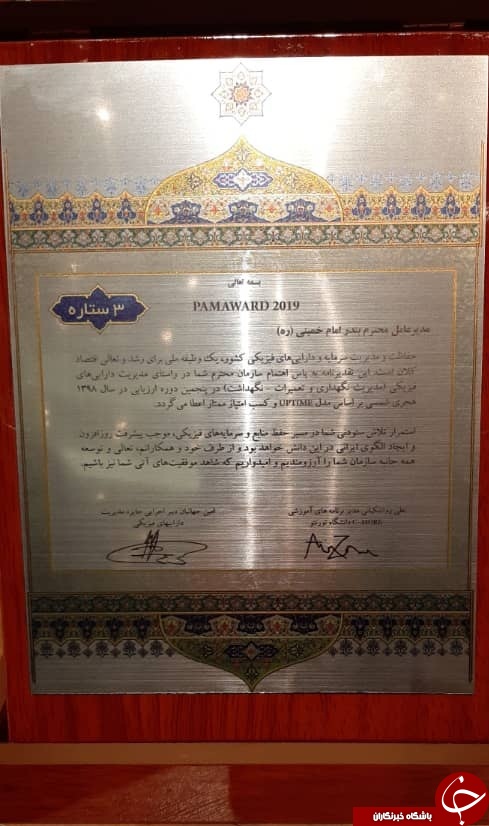 بسمه تعالی
PAMAWARD 2019
۳ ستاره
مدیر عامل محترم بندر امام خمینی (ره)
حفاظت و مدیریت سرمایه و دارایی‌های فیزیکی کشور، یک وظیفه ملی برای رشد و تعالی اقتصاد
کلان است. این تقدیرنامه به پاس اهتمام سازمان محترم شما در راستای مدیریت دارایی‌های
فیزیکی (مدیریت نگهداری و تعمیرات - نگهداشت) در پنجمین دوره ارزیابی در سال ۱۳۹۸
هجری شمسی بر اساس مدل UPTIME و کسب امتیاز ممتاز اعطا می‌گردد.
استمرار تلاش ستودنی شما در مسیر حفظ منابع و سرمایه‌های فیزیکی، موجب پیشرفت روزافزون
و ایجاد الگوی ایرانی در این دانش خواهد بود و از طرف خود و همکارانم، تعالی و توسعه
همه جانبه سازمان شما را آرزومندیم و امیدواریم که شاهد موفقیت‌های آتی شما نیز باشیم.
علی زواشکیانی مدیر برنامه های آموزشی
C-MORE دانشگاه تورنتو
امین جهانیان دبیر اجرایی جایزه مدیریت
دارایهای فیزیکی
باشگاه خبرنگاران